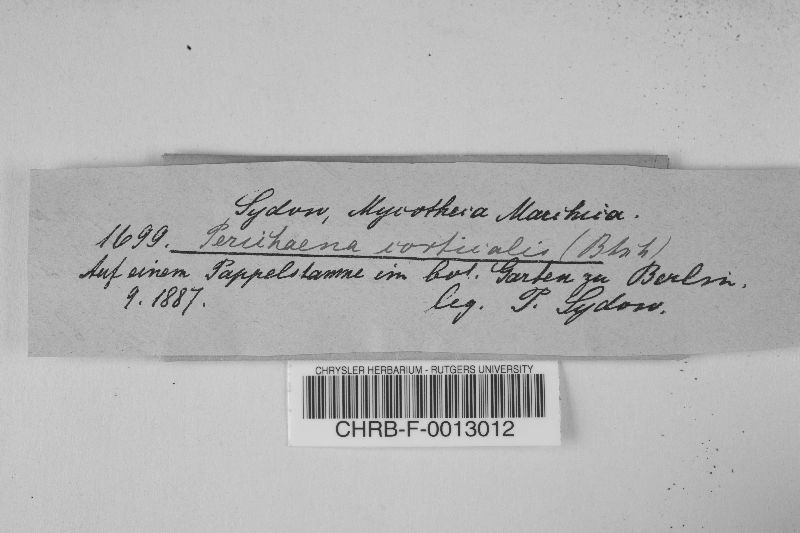 Sydow, Mycotheca Marchica.
1699. Perichaena corticalis (Btsch)
Auf einem Pappelstamme im bot. Garten zu Berlin.
9. 1887. leg. P. Sydow.
CHRYSLER HERBARIUM - RUTGERS UNIVERSITY
CHRB-F-0013012